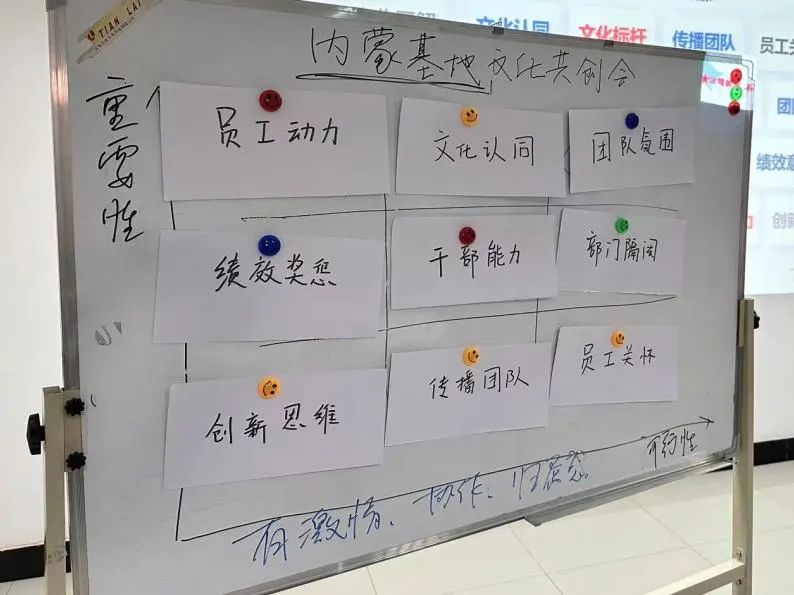 TIAN LAI
内蒙基地文化共创会
重要性
员工动力
文化认同
团队氛围
绩效奖惩
干部能力
部门隔阂
创新思维
传播团队
员工关怀
可行性
有激情、协作、归属感
文化认同
文化标杆
传播团队
员工关
团队
绩效意
创新